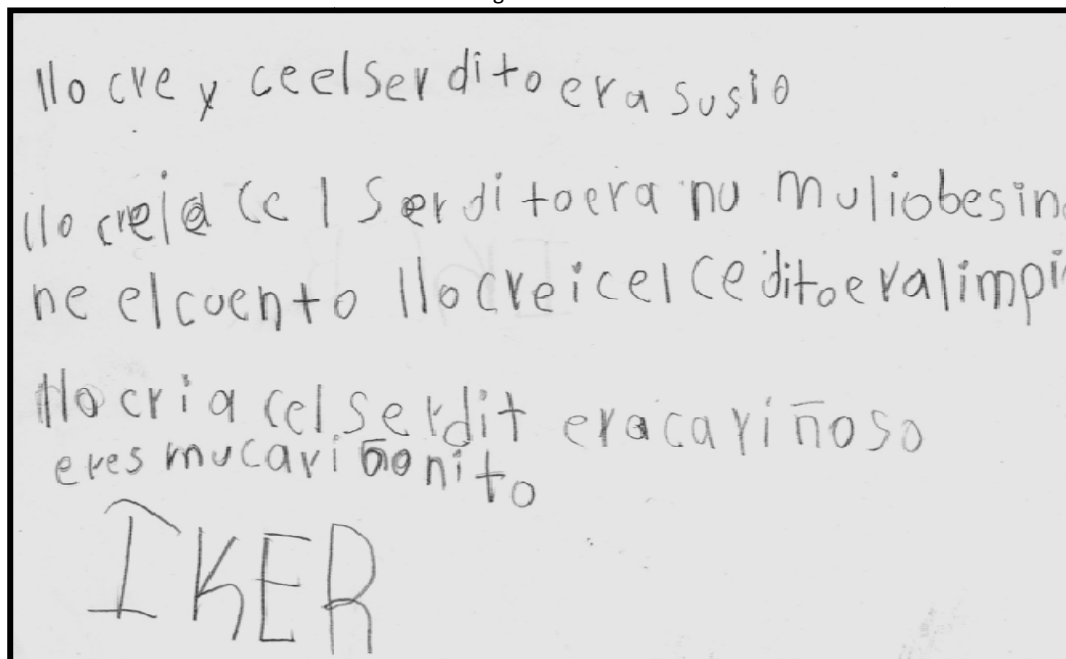 llo cre y ceelserdito era susio
llo creia ce l Serditoera nu muliobesin
ne elcuento llocreicel ceditoeralimpi
llo cria cel serdit eracariñoso
eres mucariñonito
IKER